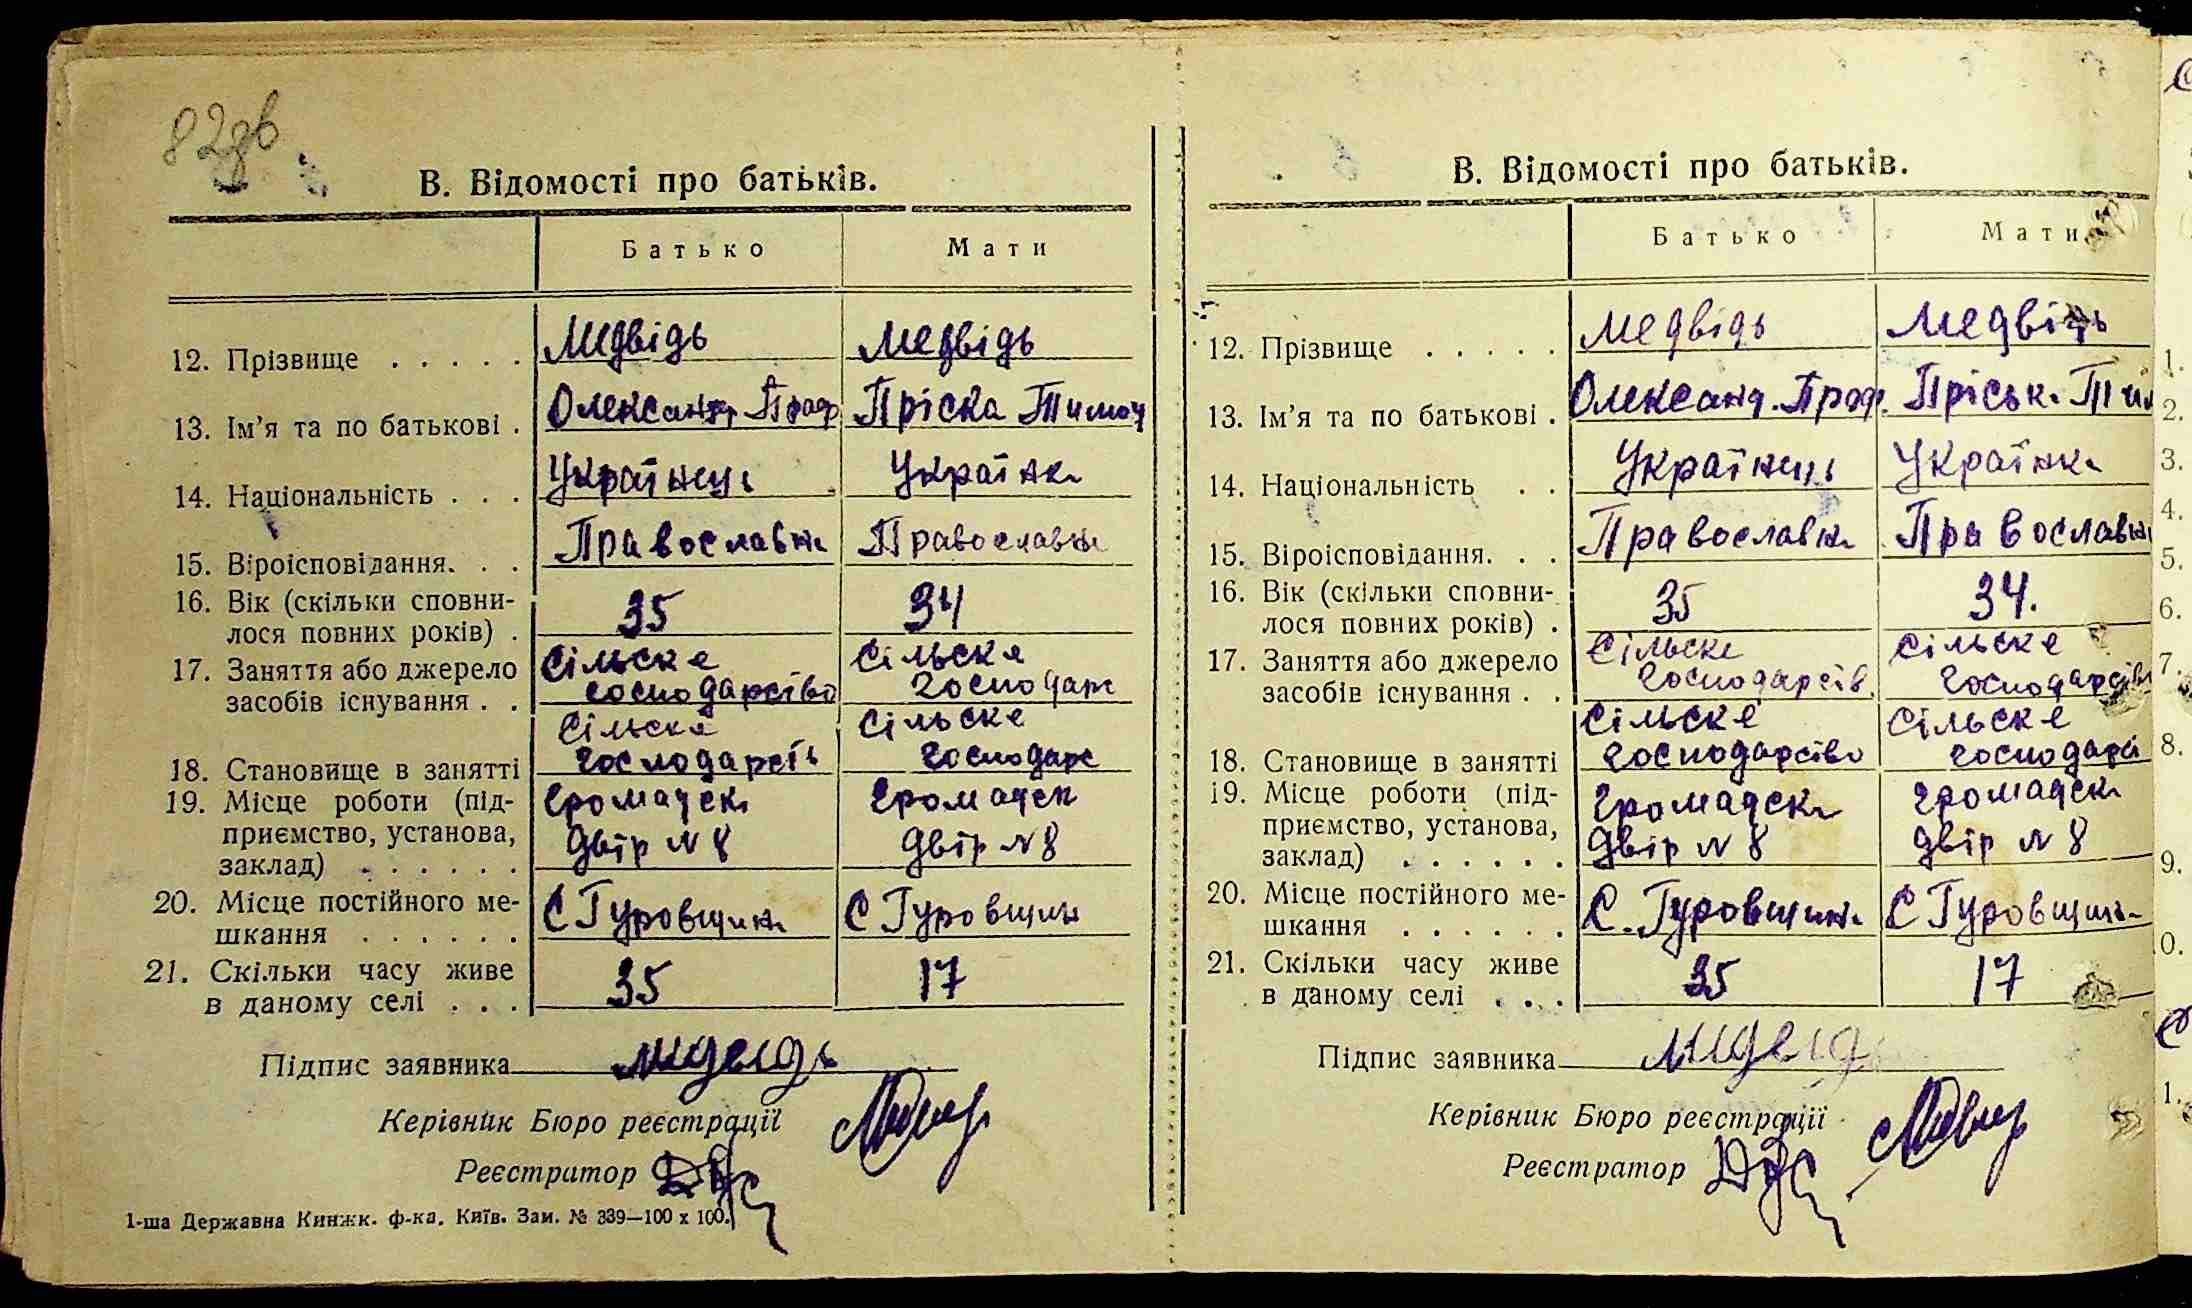 82зв
В. Відомості про батьків.
Батько Мати
12. Прізвище . . . . . Медвідь Медвідь
13. Ім'я та по батькові . Олександр Проф Пріска Тимоч
14. Національність . . . Українець Українк
15. Віроісповідання. . . Православн Православн
16. Вік (скільки сповни-
лося повних років) . 35 34
17. Заняття або джерело Сільске Сільске
засобів існування . . господарство господарс
Сільске Сільске
18. Становище в занятті господарст господарс
19. Місце роботи (під- громадск громадск
приємство, установа, двір N 8 двір N 8
заклад) . . . . . .
20. Місце постійного ме-
шкання . . . . . . С Гуровщин С Гуровщин
21. Скільки часу живе
в даному селі . . . 35 17
Підпис заявника Медвідь
Керівник Бюро реєстрації
Реєстратор
1-ша Державна Книжк. ф-ка. Київ. Зам. № 339—100 х 100.
В. Відомості про батьків.
Батько Мати
12. Прізвище . . . . . Медвідь Медвідь
13. Ім'я та по батькові . Олександ. Проф. Пріськ. Тим
14. Національність . . Українець Українк
15. Віроісповідання. . . Православн Православн
16. Вік (скільки сповни-
лося повних років) . 35 34.
17. Заняття або джерело Сільске Сільске
засобів існування . . господарств господарств
Сільске Сільске
18. Становище в занятті господарство господарс
19. Місце роботи (під- громадск громадск
приємство, установа, двір N 8 двір N 8
заклад) . . . . . .
20. Місце постійного ме-
шкання . . . . . . С. Гуровщин С Гуровщин
21. Скільки часу живе
в даному селі . . . 35 17
Підпис заявника Медвідь
Керівник Бюро реєстрації
Реєстратор
1.
2.
3.
4.
5.
6.
7.
8.
9.
0.
1.